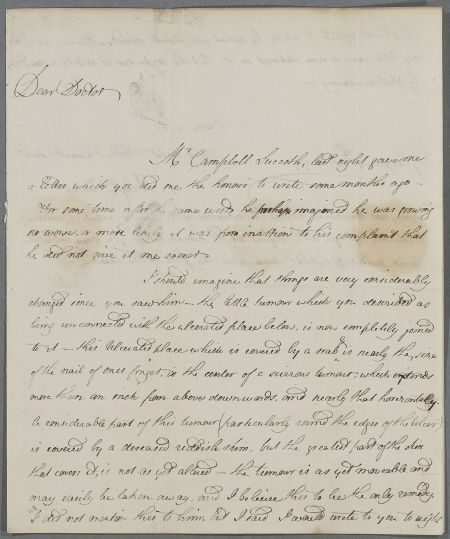 Dear Doctor
Mr Campbell Succoth, last night gave me
a letter which you did me the honour to write some months ago –
For some time after he came west he perhaps imagined he was growing
no worse, or more likely it was from inattention to his complaint that
he did not give it me sooner.
I should imagine that things are very considerably
changed since you saw him – the little tumour which you described as
being unconnected with the ulcerated place below, is now completely joined
to it – this Ulcerated place which is covered by a scab is nearly the size
of the nail of ones finger, in the center of a scirrous tumour; which extends
more than an inch from above downwards, and nearly that horizontally.
A considerable part of this tumour (particularly round the edges of the Ulcer)
is covered by a deseased reddish skin, but the greatest part of the skin
that covers it, is not as yet altered – the tumour is as yet moveable and
may easily be taken away, and I believe this to be the only remedy.
I did not mention this to him, but I said I would write to you to night